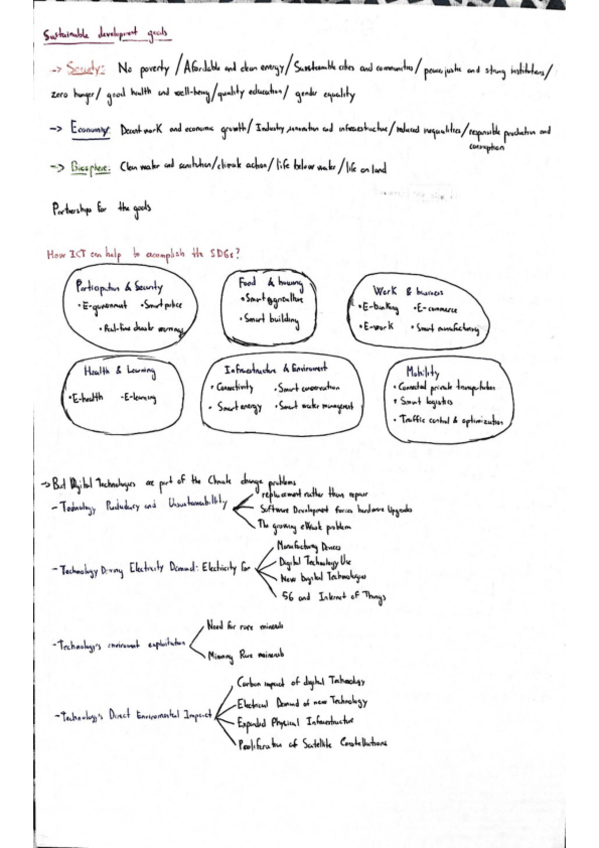 Sustainable development goals
-> Society: No poverty / Affordable and clean energy / Sustainable cities and communities / peace, justice and strong institutions /
zero hunger / good health and well-being / quality education / gender equality
-> Economy: Decent work and economic growth / Industry, innovation and infraestructure / reduced inequalities / responsible production and
consumption
-> Biosphere: Clean water and sanitation / climate action / life below water / life on land
Partnerships for the goals
How ICT can help to acomplish the SDGs?
Participation & Security
• E-government • Smart police
• Real-time disaster warnings
Food & housing
• Smart agriculture
• Smart building
Work & business
• E-banking • E-commerce
• E-work • Smart manufacturing
Health & Learning
• E-health • E-learning
Infraestructure & Enviroment
• Connectivity • Smart conservation
• Smart energy • Smart water management
Mobility
• Connected private transportation
• Smart logistics
• Traffic control & optimization
-> But Digital Technologies are part of the Climate change problems
- Technology Productivity and Unsustainability
replacement rather than repair
Software Development forces hardware Upgrades
The growing eWaste problem
- Technology Driving Electricity Demand: Electricity for
Manufacturing Devices
Digital Technology Use
New Digital Technologies
5G and Internet of Things
- Technology's enviroment exploitation
Need for rare minerals
Mining Rare minerals
- Technology's Direct Enviromental Impact
Carbon impact of digital Technology
Electrical Demand of new Technology
Expanded Physical Infraestructure
Proliferation of Satellite Constellations